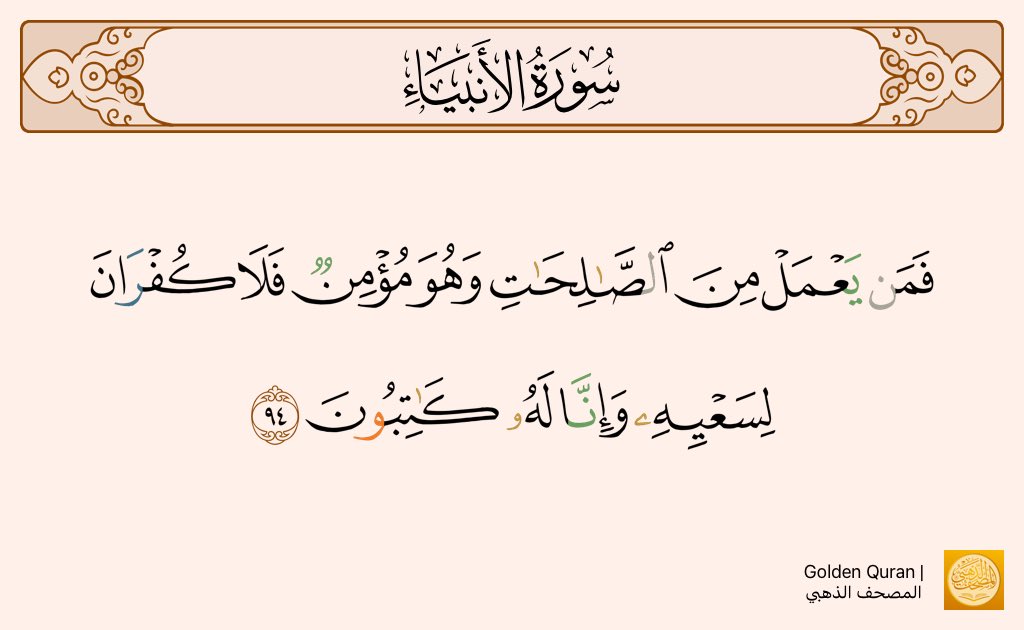 سُورَةُ الأَنبَيَاءِ
فَمَن يَعۡمَلۡ مِنَ ٱلصَّـٰلِحَـٰتِ وَهُوَ مُؤۡمِنࣱ فَلَا كُفۡرَانَ
لِسَعۡیِهِۦ وَإِنَّا لَهُۥ كَـٰتِبُونَ ٩٤
Golden Quran |
المصحف الذهبي